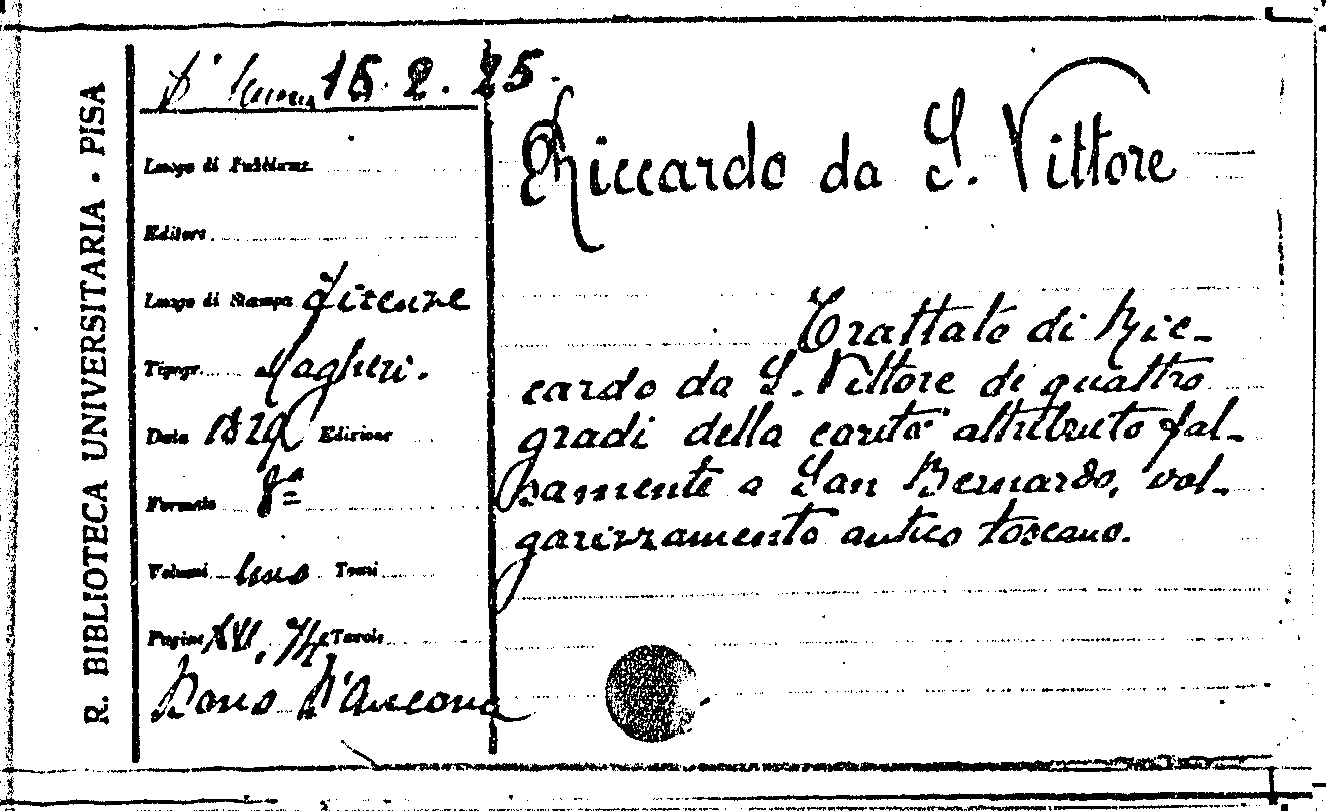 R. BIBLIOTECA UNIVERSITARIA · PISA
D'Ancona 15. 2. 25.
Luogo di Pubblicaz.
Editore
Luogo di Stampa Firenze
Tipogr. Magheri.
Data 1829 Edizione
Formato 8º
Volumi uno Tomi
Pagine XVI, 74 Tavole
Dono D'Ancona
Riccardo da S. Vittore
Trattato di Ric-
cardo da S. Vittore di quattro
gradi della carità attribuito fal-
samente a San Bernardo, vol-
garizzamento antico toscano.